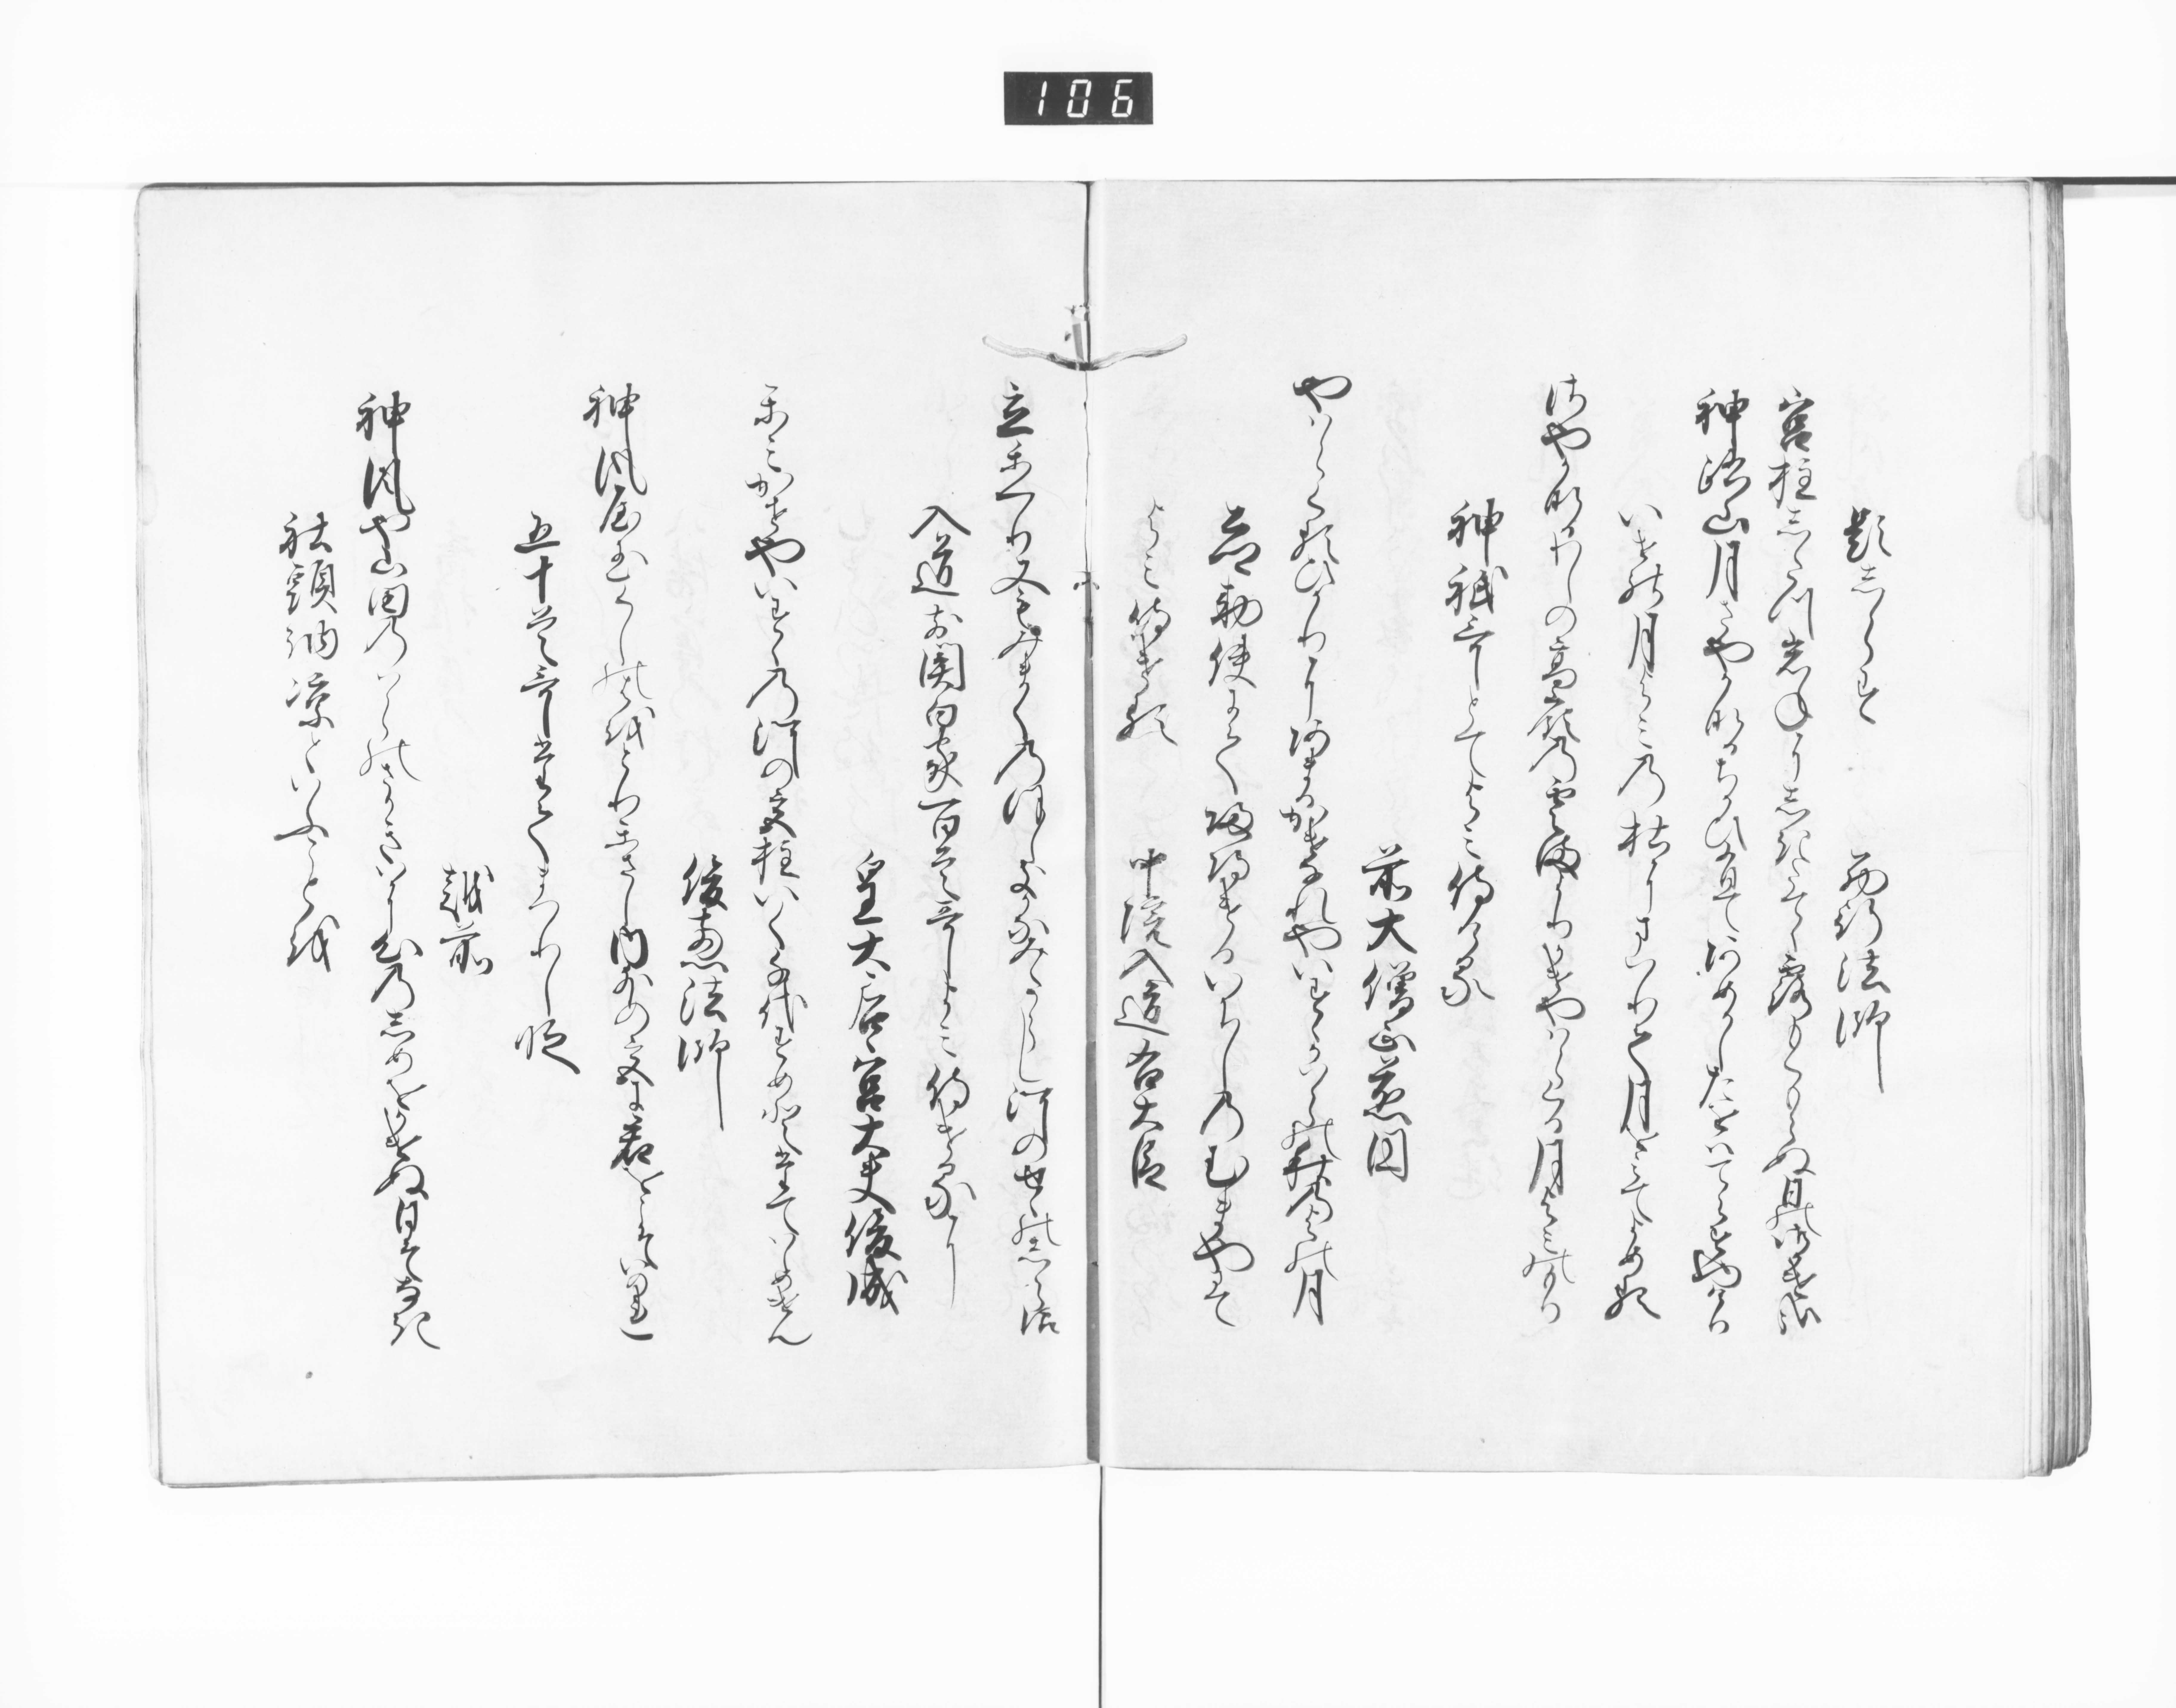 題しらす　西行法師
宮柱したつ岩ねにしきたてゝ露もくもらぬ日の御かけ哉
神路山月さやかなるちかひありてあめのしたをはてらすなりけり
いせの月よみの社にまいりて月をみてよめる
さやかなるわしの高嶺の雲ゐよりかけやはらくる月よみのもり
神祇哥とてよみ侍ける
前大僧正慈円
やはらくるひかりにあまるかけなれやいすゝかはらの秋のよの月
公卿勅使にて帰侍けるいちしのむまやにて
よみ侍ける
中院入道右大臣
立かへり又もみまくのほしきかなみもすそ河のせゝのしら浪
入道前関白家百首哥よみ侍けるに
皇太后宮大夫俊成
かみかせやいすゝの河の宮柱いく千代すめとたてはしめけん
俊恵法師
神風や玉くしのはをとりかさし内外の宮に君をこそいのれ
五十首哥たてまつりし時
越前
神風や山田のはらのさかきはに心のしめをかけぬ日そなき
社頭納凉といふことを